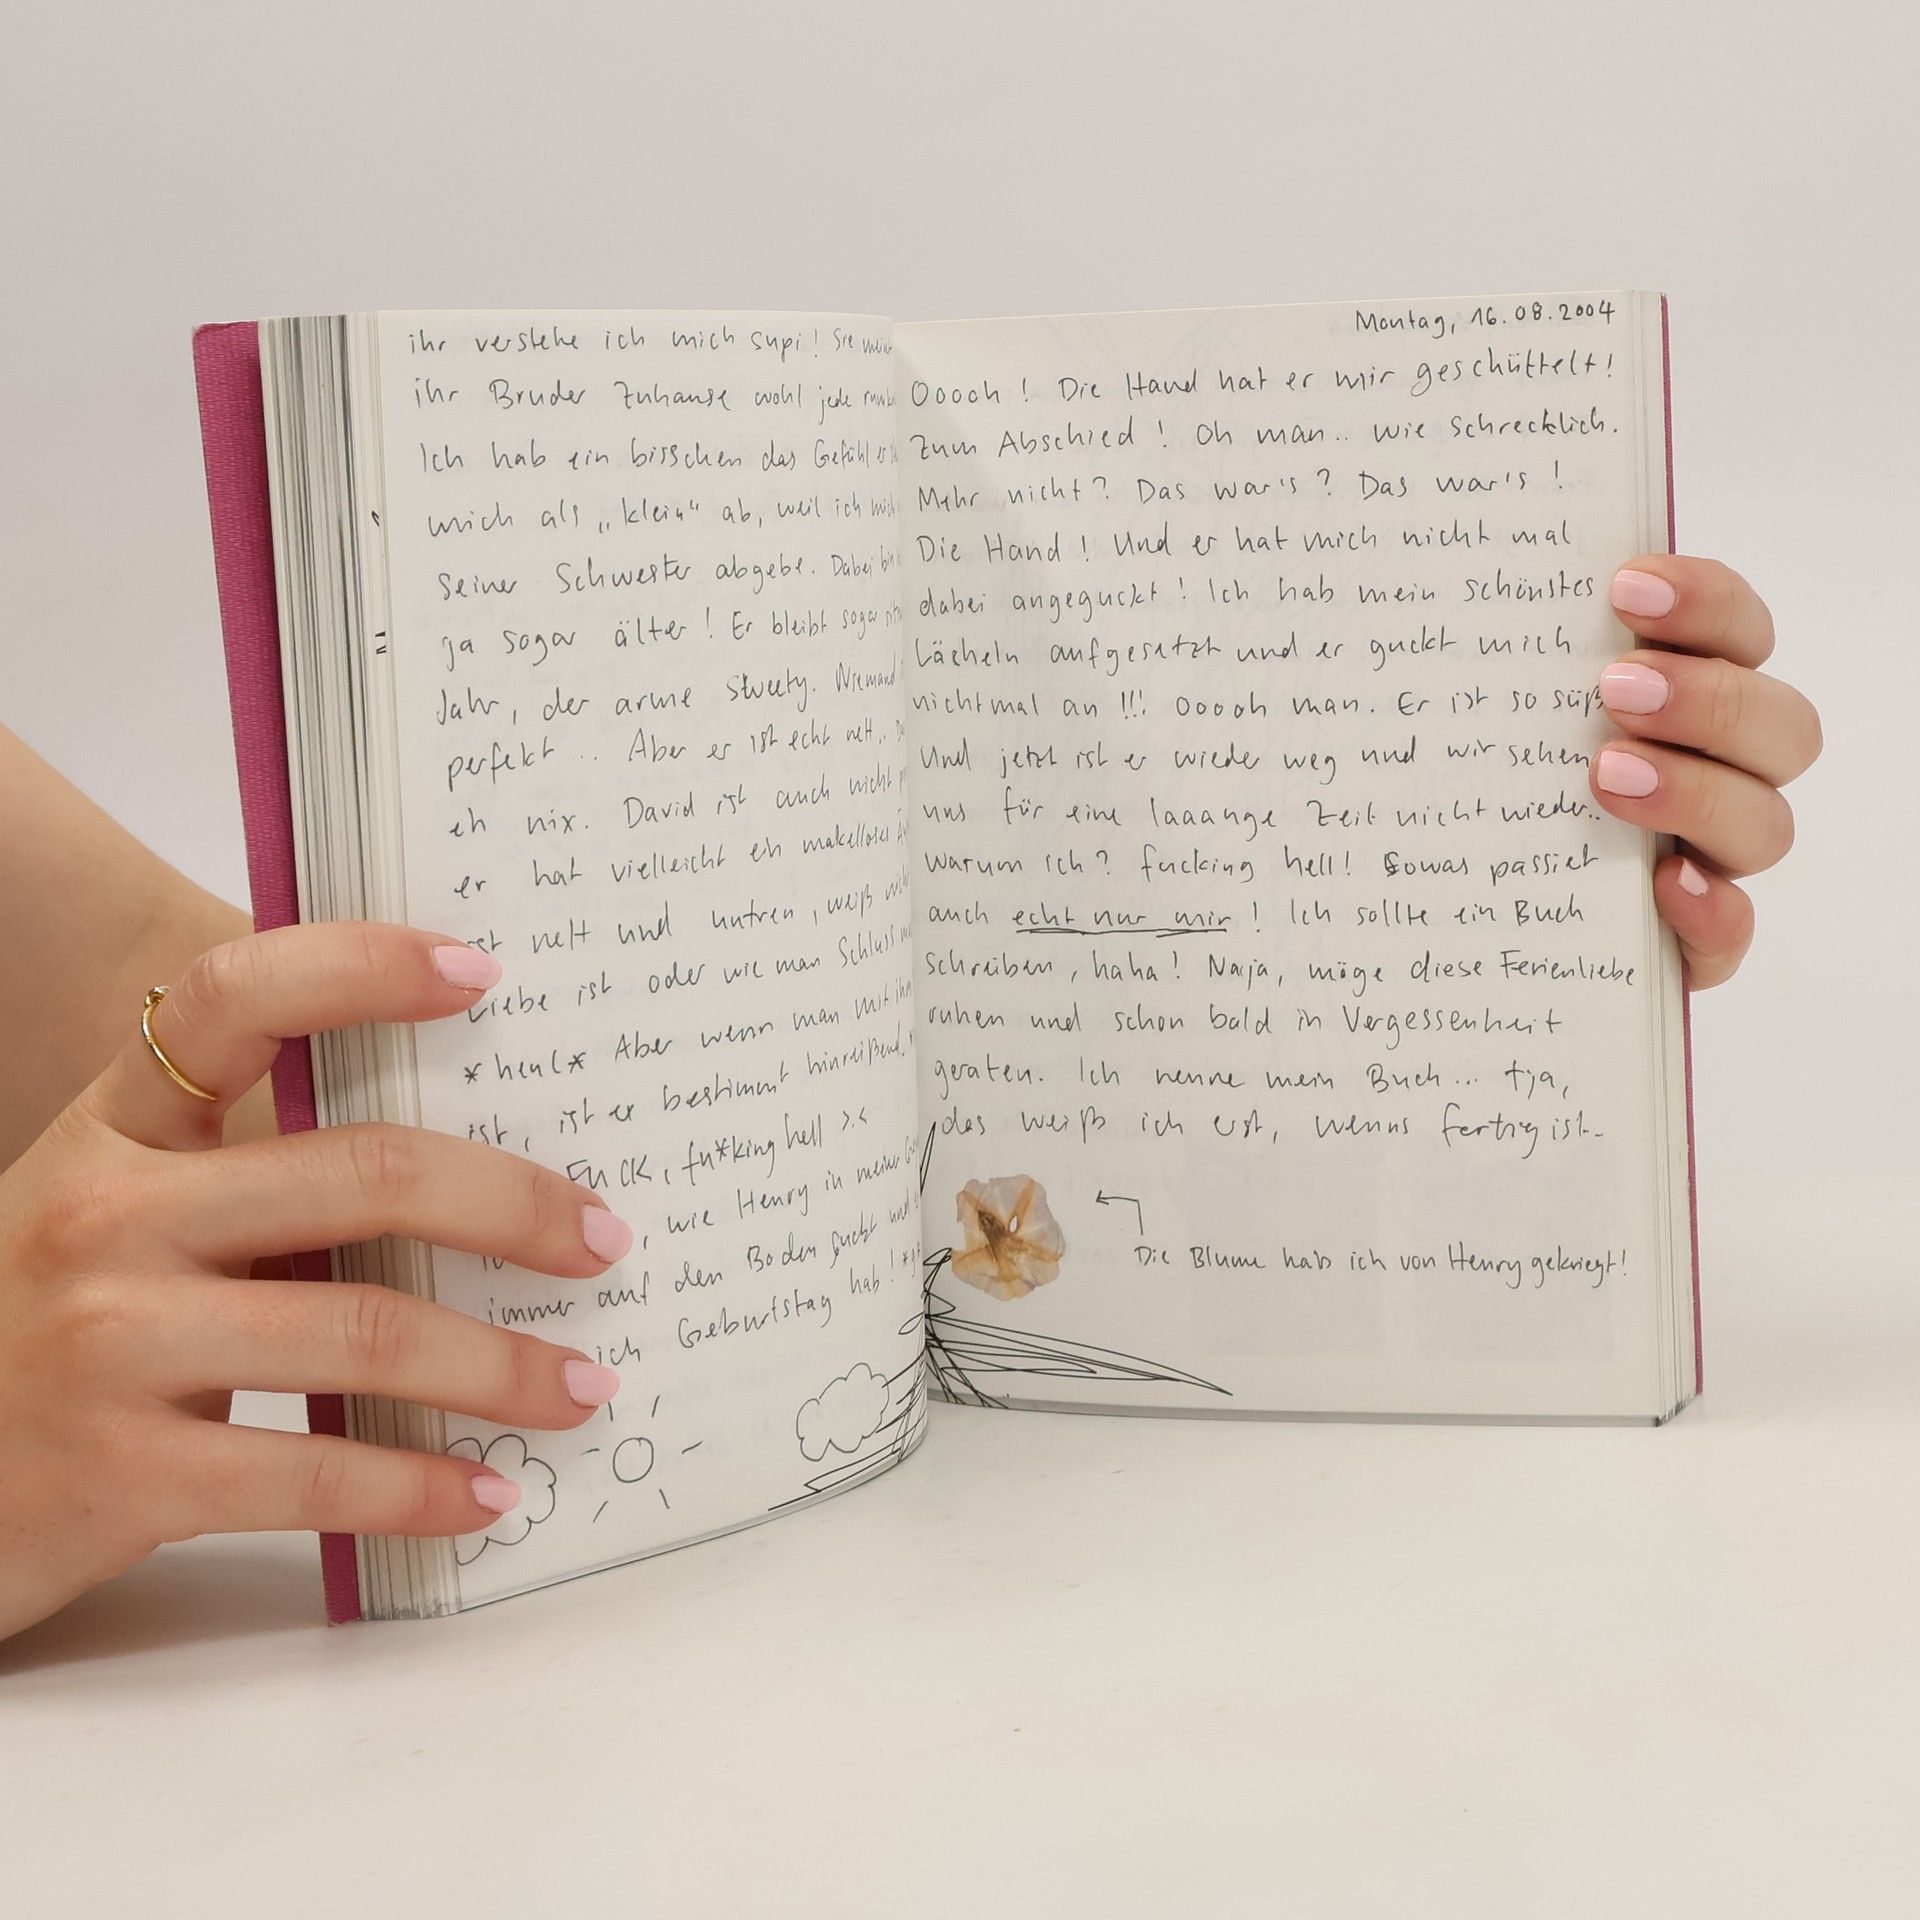 ihr verstehe ich mich supi! Sie
ihr Bruder Zuhause wohl jede
Ich hab ein bisschen das Gefühl er
mich als „klein“ ab, weil ich mich
seiner Schwester abgebe. Dabei bin
ja sogar älter! Er bleibt sogar
Jahr, der arme Sweety. Niemand
perfekt... Aber er ist echt nett..
eh nix. David ist auch nicht
er hat vielleicht ein makelloses
ist nett und untreu, weiß nicht
Liebe ist oder wie man Schluss
*heul* Aber wenn man mit ihm
ist, ist er bestimmt hinreißend.
FUCK, fu*king hell >.<
, wie Henry in meine
immer auf den Boden guckt und
ich Geburtstag hab!
Montag, 16.08.2004
Ooooh! Die Hand hat er mir geschüttelt!
Zum Abschied! Oh man.. wie schrecklich.
Mehr nicht? Das war's? Das war's!
Die Hand! Und er hat mich nicht mal
dabei angeguckt! Ich hab mein schönstes
Lächeln aufgesetzt und er guckt mich
nichtmal an!!! Ooooh man. Er ist so süß
Und jetzt ist er wieder weg und wir sehen
uns für eine laaange Zeit nicht wieder..
Warum ich? fucking hell! Sowas passiert
auch echt nur mir! Ich sollte ein Buch
schreiben, haha! Naja, möge diese Ferienliebe
ruhen und schon bald in Vergessenheit
geraten. Ich nenne mein Buch... tja,
das weiß ich erst, wenns fertig ist.
Die Blume hab ich von Henry gekriegt!